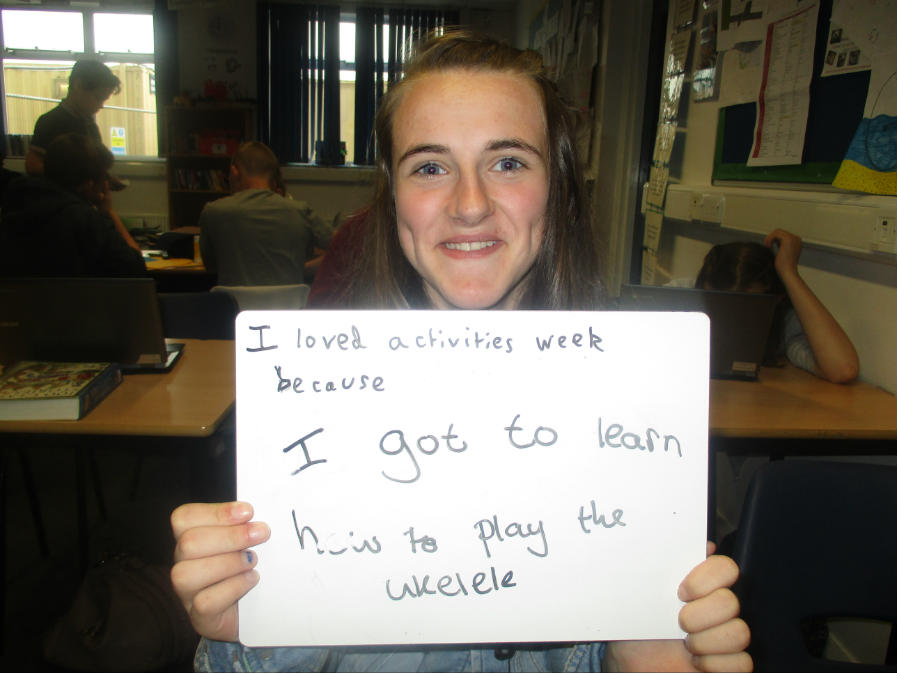 I loved activities week
because
I got to learn
how to play the
ukelele